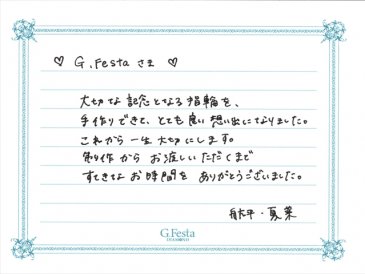 ♡ G.Festa さま ♡
大切な記念となる指輪を、
手作りできて、とても良い想い出になりました。
これから一生大切にします。
制作からお渡しいただくまで
すてきなお時間をありがとうございました。
航平・夏菜
G.Festa
DIAMOND